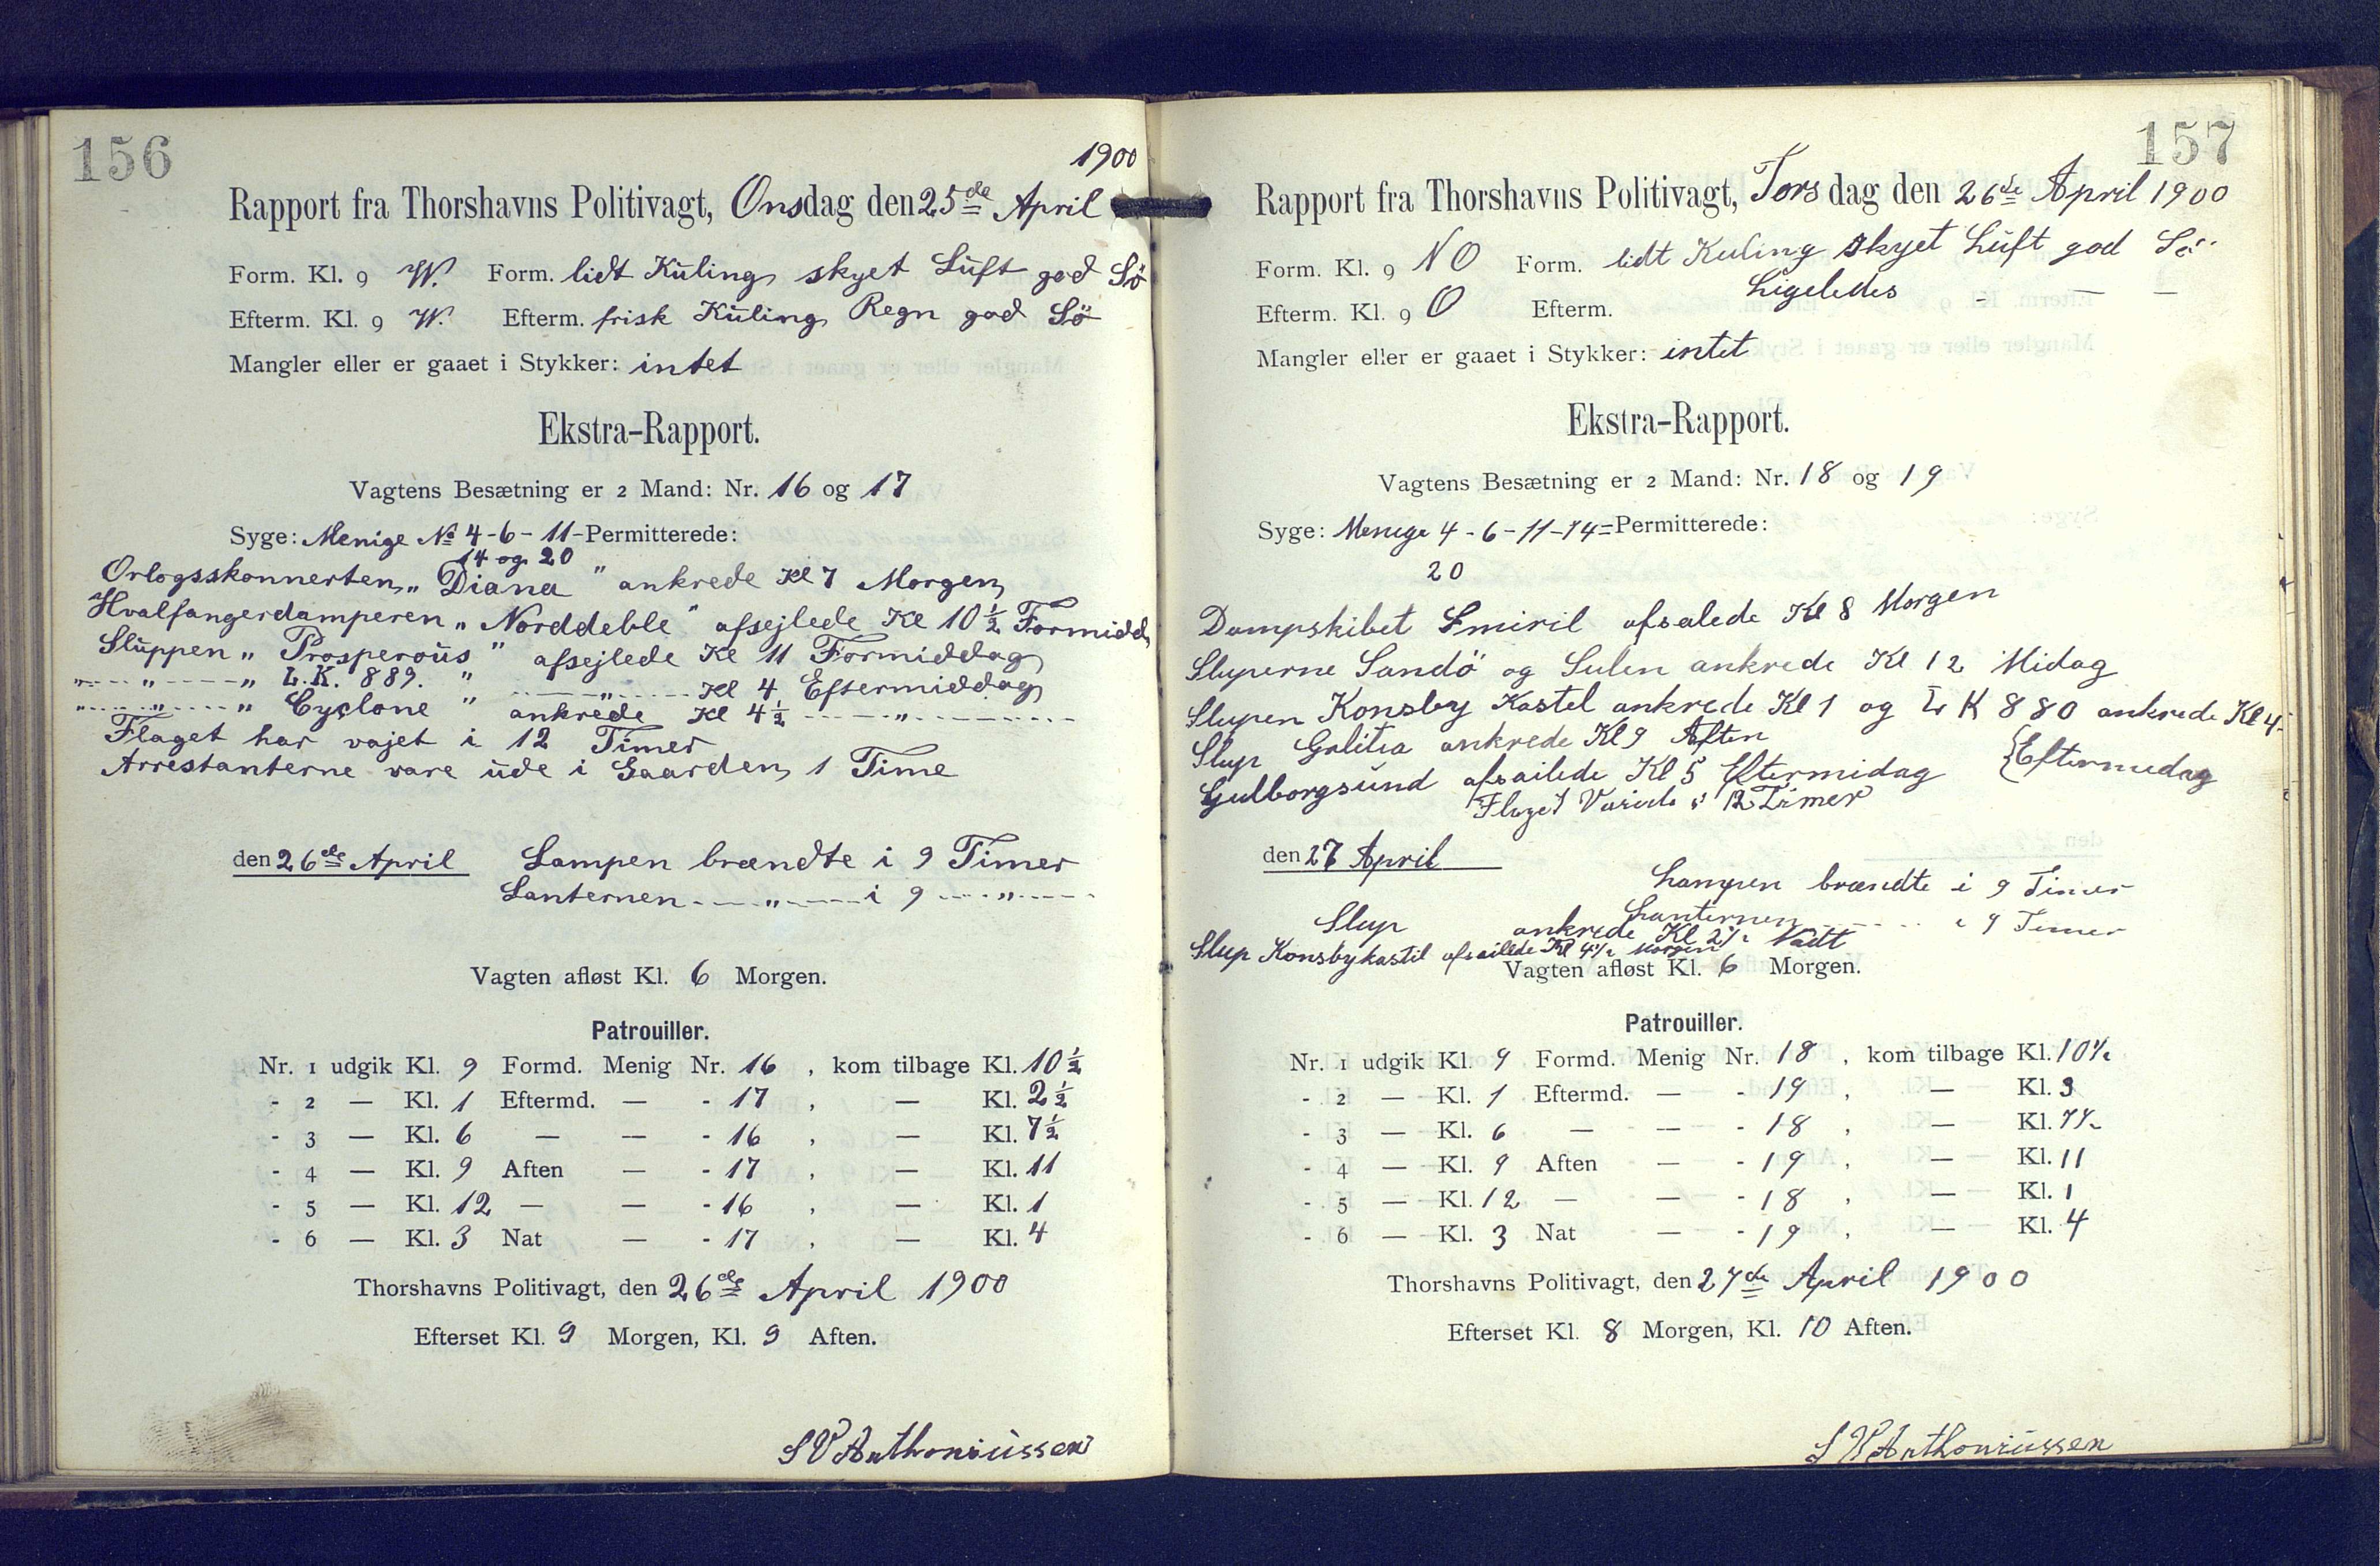 156
1900
Rapport fra Thorshavns Politivagt, Onsdag den 25de April
Form. Kl. 9 W. Form. lidt Kuling skyet Luft god Sö
Efterm. Kl. 9 W. Efterm. frisk Kuling Regn god Sö
Mangler eller er gaaet i Stykker: intet
Ekstra-Rapport.
Vagtens Besætning er 2 Mand: Nr. 16 og 17
Syge: Menige No 4-6-11- Permitterede:
14 og 20
Orlogsskonnerten „Diana" ankrede Kl 7 Morgen
Hvalfangerdamperen „Norddeble" afsejlede Kl 10½ Formidd
Sluppen „Prosperous" afsejlede Kl 11 Formiddag
„ — „ — „ L.K. 889. " — „ — Kl 4 Eftermiddag
„ — „ — „ Cyclone " ankrede Kl 4½ — „ —
Flaget har vajet i 12 Timer
Arrestanterne vare ude i Gaarden 1 Time
den 26de April Lampen brændte i 9 Timer
Lanternen — „ — i 9 — „ —
Vagten afløst Kl. 6 Morgen.
Patrouiller.
Nr. 1 udgik Kl. 9 Formd. Menig Nr. 16 , kom tilbage Kl. 10½
- 2 — Kl. 1 Eftermd. — - 17 , — Kl. 2½
- 3 — Kl. 6 — — - 16 , — Kl. 7½
- 4 — Kl. 9 Aften — - 17 , — Kl. 11
- 5 — Kl. 12 — — - 16 , — Kl. 1
- 6 — Kl. 3 Nat — - 17 , — Kl. 4
Thorshavns Politivagt, den 26de April 1900
Efterset Kl. 9 Morgen, Kl. 9 Aften.
S V Anthoniussen
157
Rapport fra Thorshavns Politivagt, Torsdag den 26de April 1900
Form. Kl. 9 NO Form. lidt Kuling skyet Luft god Sö
Efterm. Kl. 9 O Efterm. Ligeledes - — —
Mangler eller er gaaet i Stykker: intet
Ekstra-Rapport.
Vagtens Besætning er 2 Mand: Nr. 18 og 19
Syge: Menige 4-6-11-14= Permitterede:
20
Dampskibet Smiril afsalede Kl 8 Morgen
Sluperne Sandö og Sulen ankrede Kl 12 Midag
Slupen Konsby Kastel ankrede Kl 1 og L K 880 ankrede Kl 4
Slup ankrede Kl 9 Aften {Eftermedag
Gulborgsund afsailede Kl 5 Eftermidag
Flaget i 12 Timer
den 27 April
Lampen brændte i 9 Timer
Lanternen — i 9 Timer
Slup ankrede Kl 2½ Natt
Slup Konsbykastil afsailede Kl 4½ Morgen
Vagten afløst Kl. 6 Morgen.
Patrouiller.
Nr. 1 udgik Kl. 9 Formd. Menig Nr. 18 , kom tilbage Kl. 10½
- 2 — Kl. 1 Eftermd. — - 19 , — Kl. 3
- 3 — Kl. 6 — — - 18 , — Kl. 7½
- 4 — Kl. 9 Aften — - 19 , — Kl. 11
- 5 — Kl. 12 — — - 18 , — Kl. 1
- 6 — Kl. 3 Nat — - 19 , — Kl. 4
Thorshavns Politivagt, den 27de April 1900
Efterset Kl. 8 Morgen, Kl. 10 Aften.
S V Anthoniussen